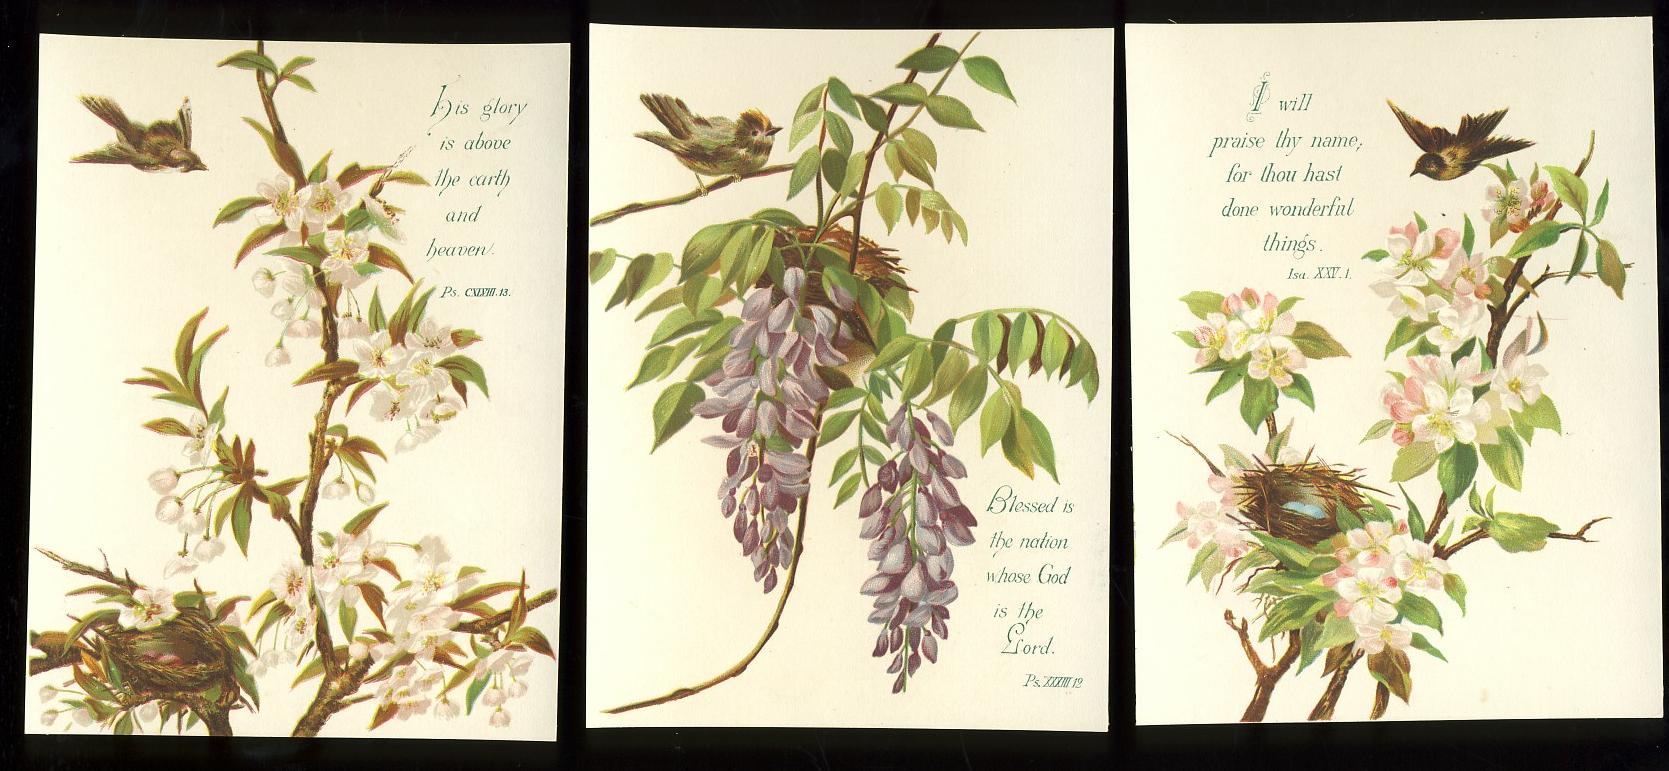 His glory
is above
the earth
and
heaven.
Ps. CXLVIII.13.
Blessed is
the nation
whose God
is the
Lord.
Ps. XXXIII 12
I will
praise thy name;
for thou hast
done wonderful
things.
Isa. XXV. 1.